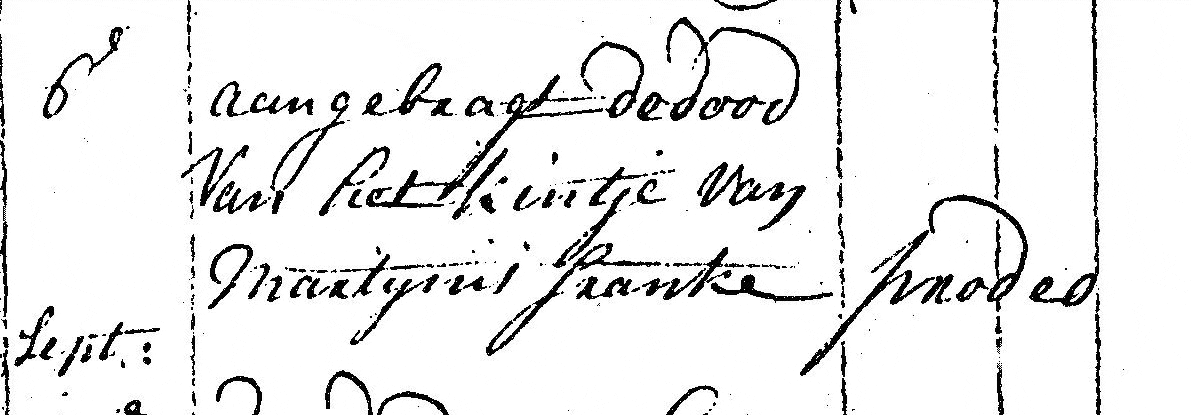 6e
aangebragt de dood
van het kintje van
Martynis franke prodeo
Sept: